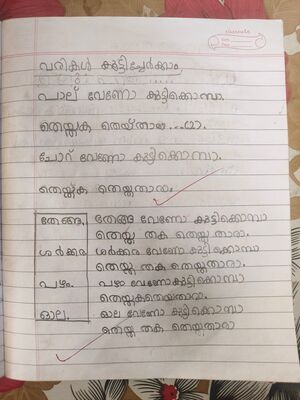 classmate
Date
Page
വരികൾ കൂട്ടിച്ചേർക്കാം
പാല് വേണോ കുട്ടിക്കൊമ്പാ.
തെയ്യക തെയ്തായ ...(2).
ചോറ് വേണോ കുട്ടിക്കൊമ്പാ.
തെയ്യക തെയ്യതാരാം.
തേങ്ങ. തേങ്ങ വേണോ കുട്ടിക്കൊമ്പാ
തെയ്യ തക തെയ്യ താരാ.
ശർക്കര ശർക്കര വേണോ കുട്ടിക്കൊമ്പാ
തെയ്യ തക തെയ്യതാരാ.
പഴം. പഴം വേണോ കുട്ടിക്കൊമ്പാ
തെയ്യകതെയതാരാ.
ഓല. ഓല വേണോ കുട്ടിക്കൊമ്പാ
തെയ്യ തക തെയ്യതാരാ